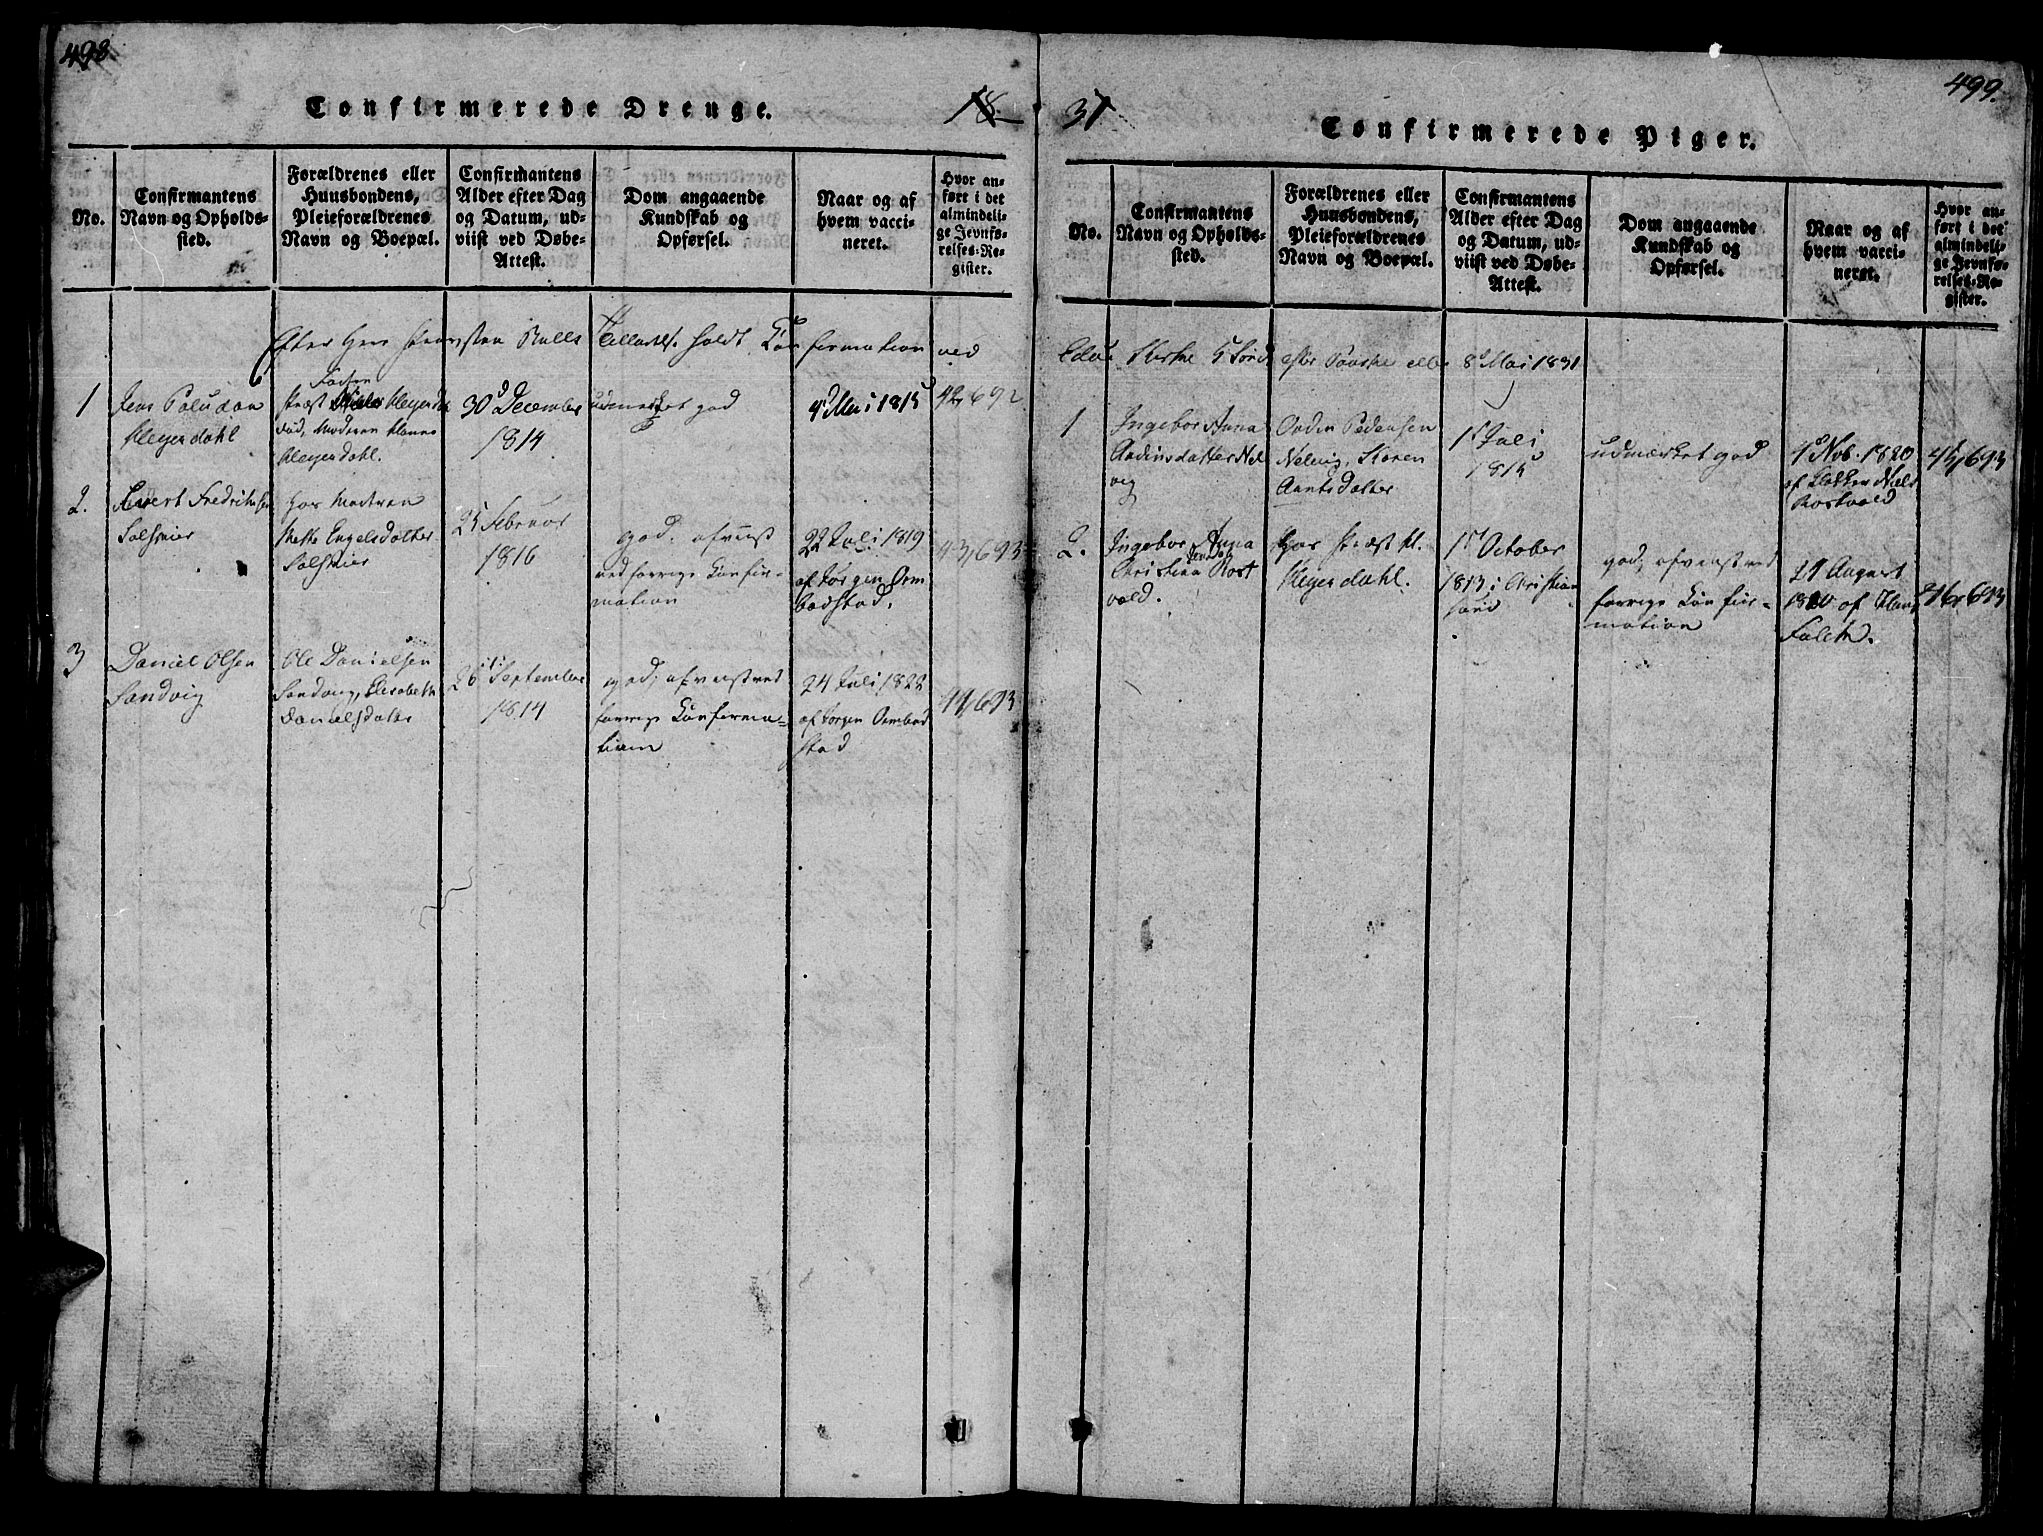 498.
Confirmerede Drenge.
18
No.
Confirmantens
Navn og Opholds-
sted.
Forældrenes eller
Huusbondens,
Pleieforældrenes
Navn og Boepæl.
Confirmantens
Alder efter Dag
og Datum, ud-
viist ved Døbe-
Attest.
Dom angaaende
Kundskab og
Opførsel.
Naar og af
hvem vacci-
neret.
Hvor an-
ført i det
almindeli-
ge Jevnfø-
relses-Re-
gister.
Efter Herr holdt Confirmation ved
1
Jens Paludan
Heyerdahl
Faderen
Præst Heyerdahl
død, Moderen Hanna
Heyerdahl.
30 December
1814
udmærket god
4 Mai 1815
42,692
2.
Fredrichsen
Solsnier
hos Moderen
Mette Engelsdatter
Solsnier
25 Februar
1816
god, afviist
ved forrige Confir-
mation
22 Juli 1819
af Jørgen Orm
bostad.
43,693
3
Daniel Olsen
Sandvig
Ole Danielsen
Sandvig, Elisabeth
Danielsdatter
26 September
1814
god, afviist ved
forrige Confirma-
tion
24 Juli 1822
af Jørgen Ormbo
stad
44,693
31
499.
Confirmerede Piger.
No.
Confirmantens
Navn og Opholds-
sted.
Forældrenes eller
Huusbondens,
Pleieforældrenes
Navn og Boepæl.
Confirmantens
Alder efter Dag
og Datum, ud-
viist ved Døbe-
Attest.
Dom angaaende
Kundskab og
Opførsel.
Naar og af
hvem vacci-
neret.
Hvor an-
ført i det
almindeli-
ge Jevnfø-
relses-Re-
gister.
Edøe Kirke 5 Sønd. efter Paaske eller 8 Mai 1831
1
Ingebor Anna
Andinsdatter Nel
vig
Andin Pedersen
Nelvig, Karen
Arntsdatter
1 Juli
1815
udmærket god
4 Nov. 1820
af Klokker Niels
Rostvold
45,693
2.
Ingebor Anna
Christina Rost
vold.
hos Præst H.
Heyerdahl.
1 October
1813 i Christian
sund
god, afviist ved
forrige Confir-
mation
21 August
1820 af Hans
Falch.
46,693